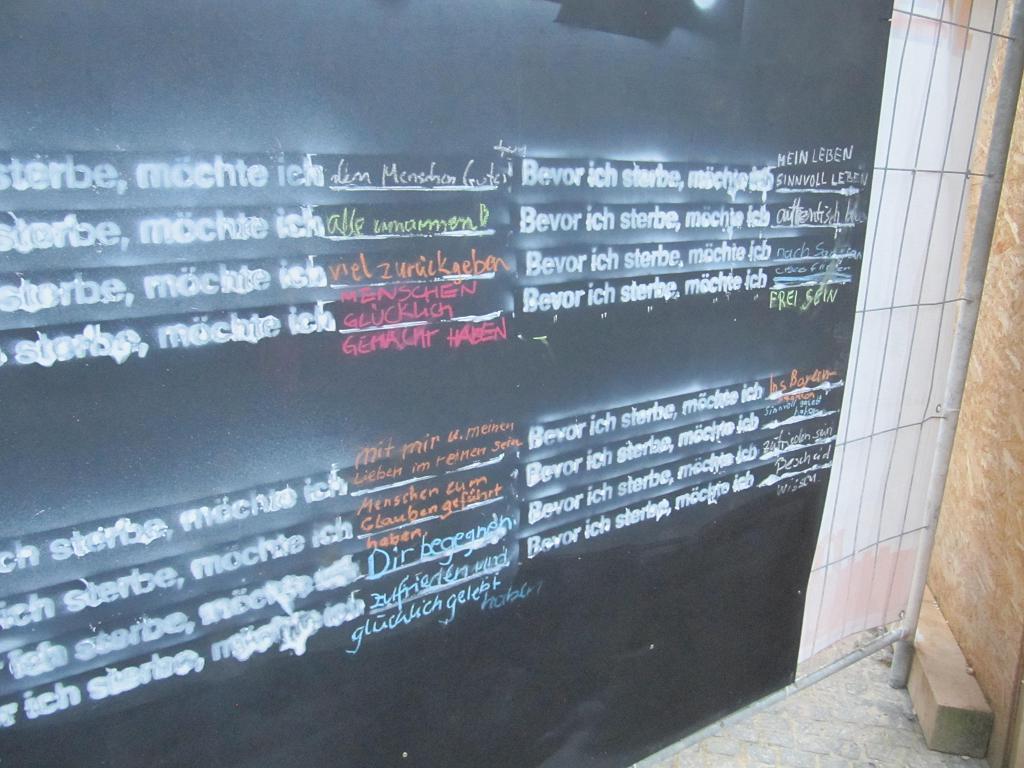 sterbe, möchte ich den Menschen Gutes tun
sterbe, möchte ich alle umarmen!
sterbe, möchte ich viel zurückgeben
sterbe, möchte ich MENSCHEN
GLÜCKLICH
GEMACHT HABEN
Bevor ich sterbe, möchte ich MEIN LEBEN
SINNVOLL LEBEN
Bevor ich sterbe, möchte ich authentisch
Bevor ich sterbe, möchte ich nach
Bevor ich sterbe, möchte ich FREI SEIN
ich sterbe, möchte ich mit mir u. meinen
Lieben im reinen sein
ich sterbe, möchte ich Menschen zum
Glauben geführt
haben
ich sterbe, möchte ich Dir begegnen
ich sterbe, möchte ich zufrieden und
glücklich gelebt haben
Bevor ich sterbe, möchte ich Ins
Bevor ich sterbe, möchte ich sinnvoll gelebt
haben
Bevor ich sterbe, möchte ich zufrieden sein
Bevor ich sterbe, möchte ich Bescheid
wissen